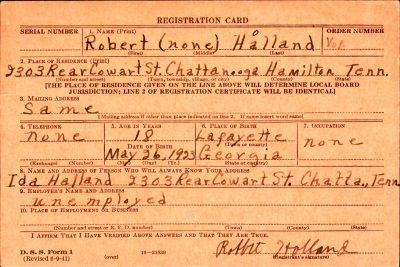 REGISTRATION CARD
SERIAL NUMBER 1. NAME (Print) ORDER NUMBER
Robert (none) Holland Vol.
(First) (Middle) (Last)
2. PLACE OF RESIDENCE (Print)
2303 Rear Cowart St. Chattanooga Hamilton Tenn.
(Number and street) (Town, township, village, or city) (County) (State)
[THE PLACE OF RESIDENCE GIVEN ON THE LINE ABOVE WILL DETERMINE LOCAL BOARD
JURISDICTION; LINE 2 OF REGISTRATION CERTIFICATE WILL BE IDENTICAL]
3. MAILING ADDRESS
Same
[Mailing address if other than place indicated on line 2. If same insert word same]
4. TELEPHONE 5. AGE IN YEARS 6. PLACE OF BIRTH 7. OCCUPATION
none 18 Lafayette none
DATE OF BIRTH (Town or county)
May 26, 1923 Georgia
(Exchange) (Number) (Mo.) (Day) (Yr.) (State or country)
8. NAME AND ADDRESS OF PERSON WHO WILL ALWAYS KNOW YOUR ADDRESS
Ida Holland 2303 Rear Cowart St. Chatta., Tenn
9. EMPLOYER'S NAME AND ADDRESS
unemployed
10. PLACE OF EMPLOYMENT OR BUSINESS
(Number and street or R. F. D. number) (Town) (County) (State)
I AFFIRM THAT I HAVE VERIFIED ABOVE ANSWERS AND THAT THEY ARE TRUE.
Robert Holland
D. S. S. Form 1 (over) (Registrant's signature)
(Revised 6-9-41)